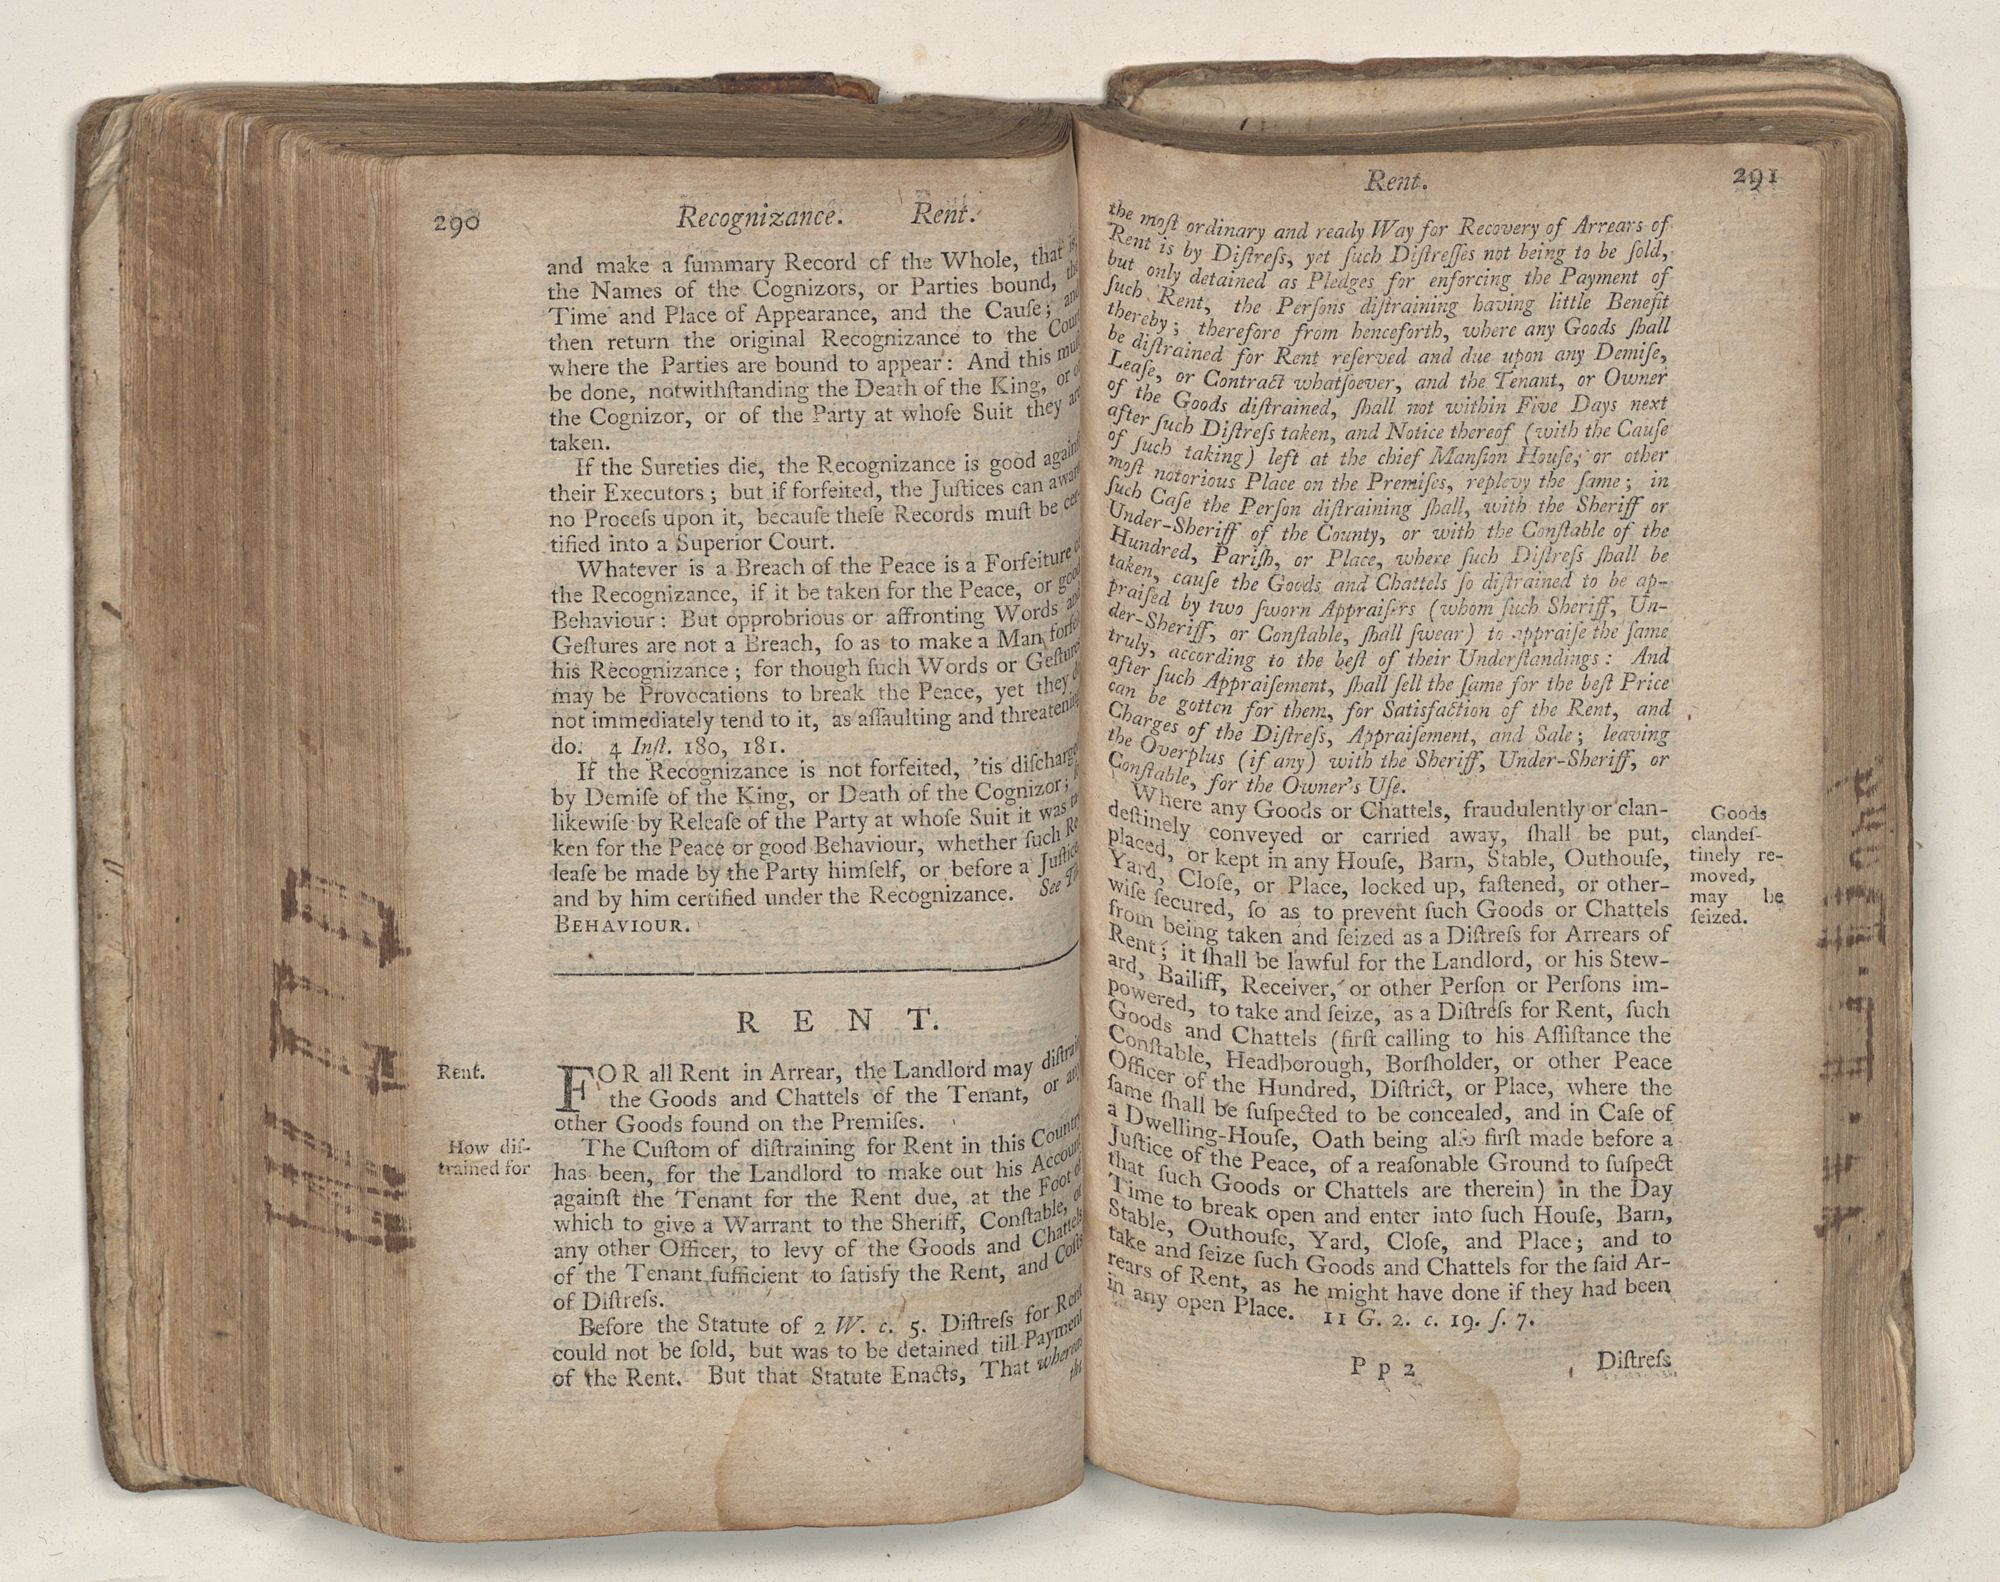 290
Recognizance. Rent.
and make a ſummary Record of the Whole, that is,
the Names of the Cognizors, or Parties bound, the
Time and Place of Appearance, and the Cauſe; and
then return the original Recognizance to the Court
where the Parties are bound to appear: And this muſt
be done, notwithſtanding the Death of the King, or of
the Cognizor, or of the Party at whoſe Suit they are
taken.
If the Sureties die, the Recognizance is good againſt
their Executors; but if forfeited, the Juſtices can award
no Proceſs upon it, becauſe theſe Records muſt be cer-
tified into a Superior Court.
Whatever is a Breach of the Peace is a Forfeiture of
the Recognizance, if it be taken for the Peace, or good
Behaviour: But opprobrious or affronting Words and
Geſtures are not a Breach, ſo as to make a Man forfeit
his Recognizance; for though ſuch Words or Geſtures
may be Provocations to break the Peace, yet they do
not immediately tend to it, as aſſaulting and threatening
do. 4 Inſt. 180, 181.
If the Recognizance is not forfeited, 'tis diſcharged
by Demiſe of the King, or Death of the Cognizor;
likewiſe by Releaſe of the Party at whoſe Suit it was ta-
ken for the Peace or good Behaviour, whether ſuch Re-
leaſe be made by the Party himſelf, or before a Juſtice
and by him certified under the Recognizance. See
BEHAVIOUR.
RENT.
Rent.
FOR all Rent in Arrear, the Landlord may diſtrain
the Goods and Chattels of the Tenant, or any
other Goods found on the Premiſes.
How diſ-
trained for
The Cuſtom of diſtraining for Rent in this Country
has been, for the Landlord to make out his Account
againſt the Tenant for the Rent due, at the Foot of
which to give a Warrant to the Sheriff, Conſtable, or
any other Officer, to levy of the Goods and Chattels
of the Tenant ſufficient to ſatisfy the Rent, and Coſts
of Diſtreſs.
Before the Statute of 2 W. c. 5. Diſtreſs for Rent
could not be ſold, but was to be detained till Payment
of the Rent. But that Statute Enacts, That whereas
the
Rent.
291
the moſt ordinary and ready Way for Recovery of Arrears of
Rent is by Diſtreſs, yet ſuch Diſtreſſes not being to be ſold,
but only detained as Pledges for enforcing the Payment of
ſuch Rent, the Perſons diſtraining having little Benefit
thereby; therefore from henceforth, where any Goods ſhall
be diſtrained for Rent reſerved and due upon any Demiſe,
Leaſe, or Contract whatſoever, and the Tenant, or Owner
of the Goods diſtrained, ſhall not within Five Days next
after ſuch Diſtreſs taken, and Notice thereof (with the Cauſe
of ſuch taking) left at the chief Manſion Houſe, or other
moſt notorious Place on the Premiſes, replevy the ſame; in
ſuch Caſe the Perſon diſtraining ſhall, with the Sheriff or
Under-Sheriff of the County, or with the Conſtable of the
Hundred, Pariſh, or Place, where ſuch Diſtreſs ſhall be
taken, cauſe the Goods and Chattels ſo diſtrained to be ap-
praiſed by two ſworn Appraiſers (whom ſuch Sheriff, Un-
der-Sheriff, or Conſtable, ſhall ſwear) to appraiſe the ſame
truly, according to the beſt of their Underſtandings: And
after ſuch Appraiſement, ſhall ſell the ſame for the beſt Price
can be gotten for them, for Satisfaction of the Rent, and
Charges of the Diſtreſs, Appraiſement, and Sale; leaving
the Overplus (if any) with the Sheriff, Under-Sheriff, or
Conſtable, for the Owner's Uſe.
Where any Goods or Chattels, fraudulently or clan-
deſtinely conveyed or carried away, ſhall be put,
placed, or kept in any Houſe, Barn, Stable, Outhouſe,
Yard, Cloſe, or Place, locked up, faſtened, or other-
wiſe ſecured, ſo as to prevent ſuch Goods or Chattels
from being taken and ſeized as a Diſtreſs for Arrears of
Rent; it ſhall be lawful for the Landlord, or his Stew-
ard, Bailiff, Receiver, or other Perſon or Perſons im-
powered, to take and ſeize, as a Diſtreſs for Rent, ſuch
Goods and Chattels (firſt calling to his Aſſiſtance the
Conſtable, Headborough, Borſholder, or other Peace
Officer of the Hundred, Diſtrict, or Place, where the
ſame ſhall be ſuſpected to be concealed, and in Caſe of
a Dwelling-Houſe, Oath being alſo firſt made before a
Juſtice of the Peace, of a reaſonable Ground to ſuſpect
that ſuch Goods or Chattels are therein) in the Day
Time to break open and enter into ſuch Houſe, Barn,
Stable, Outhouſe, Yard, Cloſe, and Place; and to
take and ſeize ſuch Goods and Chattels for the ſaid Ar-
rears of Rent, as he might have done if they had been
in any open Place. 11 G. 2. c. 19. ſ. 7.
Goods
clandeſ-
tinely re-
moved,
may be
ſeized.
Pp2
Diſtreſs